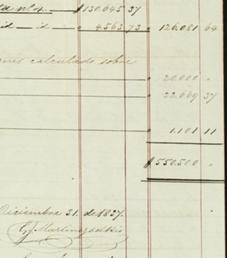 nº 4. $130.645 37
id — id " 4.563 73 " 126.081 64
calculado sobre
" 20.000 "
" 22.669 37
" 1.101 11
$550.500 "
Diciembre 31. de 1887.
G. Martinez del Rio